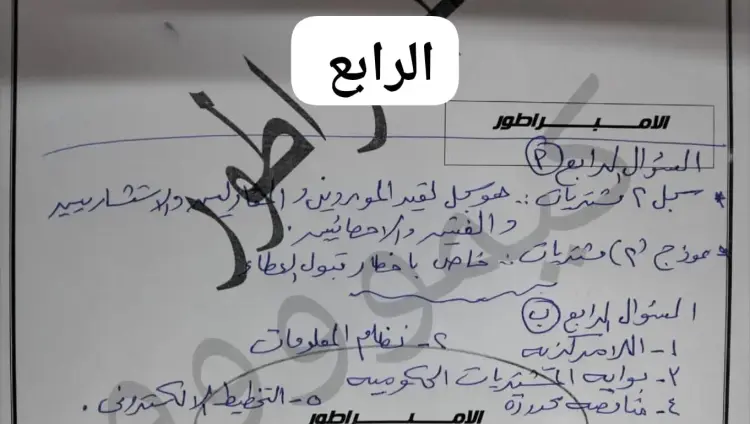 الرابع
الامبراطور
السؤال الرابع (P)
* سجل ٢ مشتريات :. هو سجل لقيد الموردين والمقاولين والاستشاريين
والفنيين والاخصائيين.
* نموذج (٢) مشتريات :. خاص باخطار قبول العطاء
السؤال الرابع (ب)
١- اللامركزيه ٢- نظام المعلومات
٣- بوابه المشتريات الحكوميه
٤- مناقصه محدودة ٥- التخطيط الالكترونى .
الامبراطور